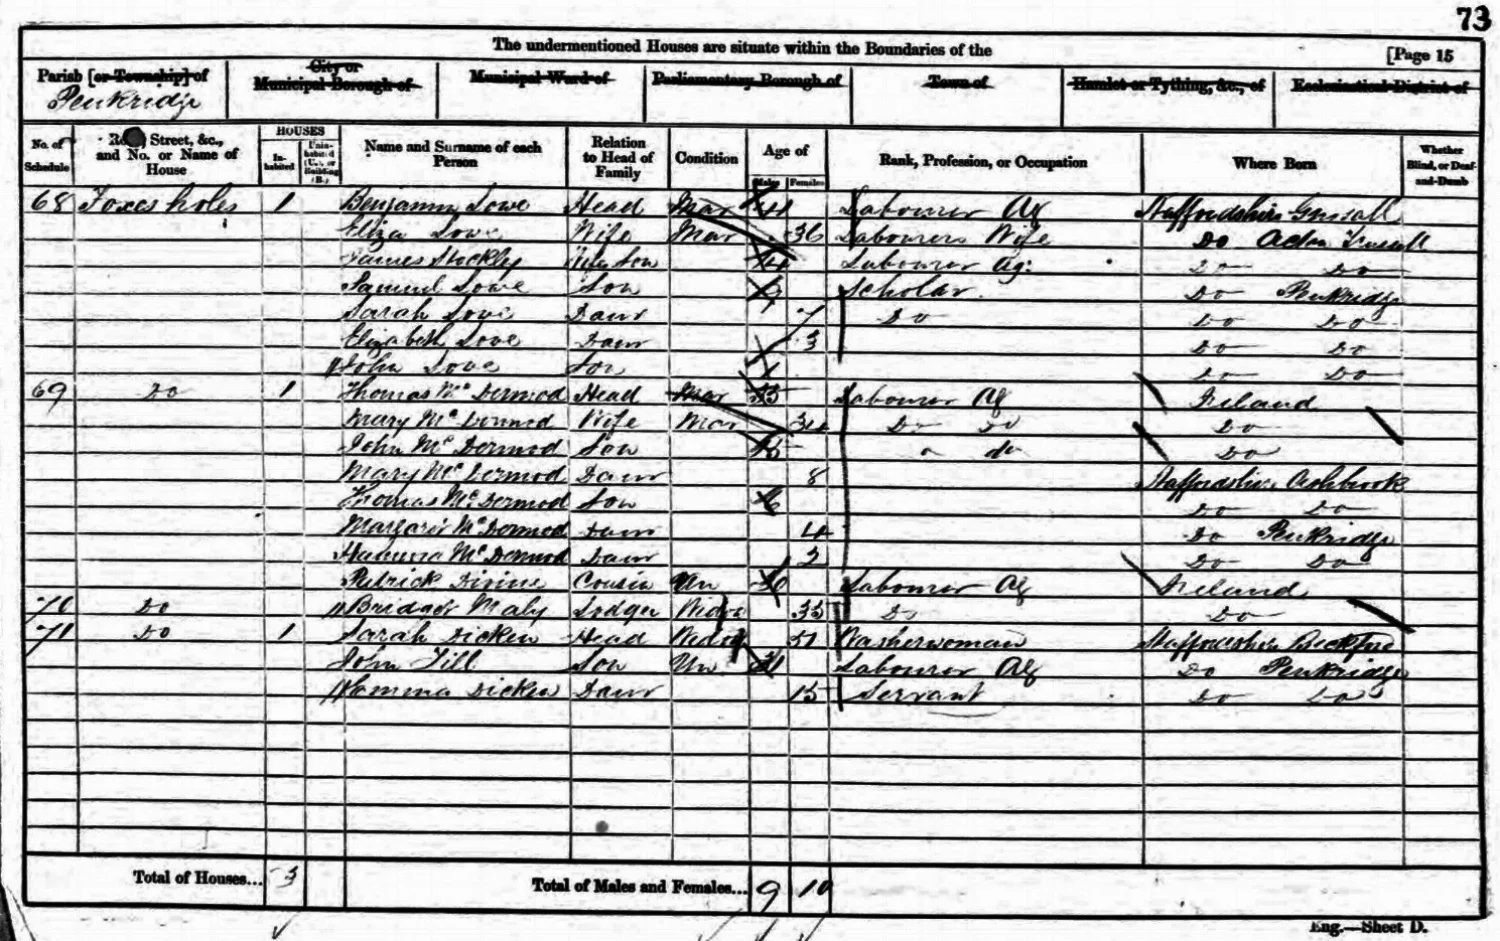 73
The undermentioned Houses are situate within the Boundaries of the
[Page 15
Parish [or Township] of Penkridge
City or Municipal Borough of
Municipal Ward of
Parliamentary Borough of
Town of
Hamlet or Tything, &c., of
Ecclesiastical District of
No. of Schedule
Street, &c., and No. or Name of House
HOUSES
In-habited
Unin-habited (U.), or Building (B.)
Name and Surname of each Person
Relation to Head of Family
Condition
Age of
Males Females
Rank, Profession, or Occupation
Where Born
Whether Blind, or Deaf-and-Dumb
68 Foxes holes 1 Benjamin Lowe Head Mar 44 Labourer Ag Staffordshire Gnosall
Eliza Lowe Wife Mar 36 Labourers Wife Do Acton Trussell
James Stockley Son 14 Labourer Ag: Do Do
Samuel Lowe Son Scholar Do Penkridge
Sarah Lowe Daur 7 Do Do Do
Elizabeth Lowe Daur 3 Do Do
John Lowe Son Do Do
69 Do 1 Thomas Mc Dermod Head Mar 35 Labourer Ag Ireland
Mary Mc Dermod Wife Mar 34 Do Do Do
John Mc Dermod Son do Do
Mary Mc Dermod Daur 8 Staffordshire
Thomas Mc Dermod Son 6 Do Do
Margaret Mc Dermod Daur 4 Do Penkridge
Mc Dermod Daur 2 Do Do
Patrick Divine Cousin Un Labourer Ag Ireland
70 Do Bridget Maly Lodger Widow 35 Do Do
71 Do 1 Sarah Dicken Head Widow 51 Washerwoman Staffordshire
John Till Son Un 21 Labourer Ag Do Penkridge
Emma Dicken Daur 15 Servant Do Do
Total of Houses... 3
Total of Males and Females... 9 10
Eng.—Sheet D.